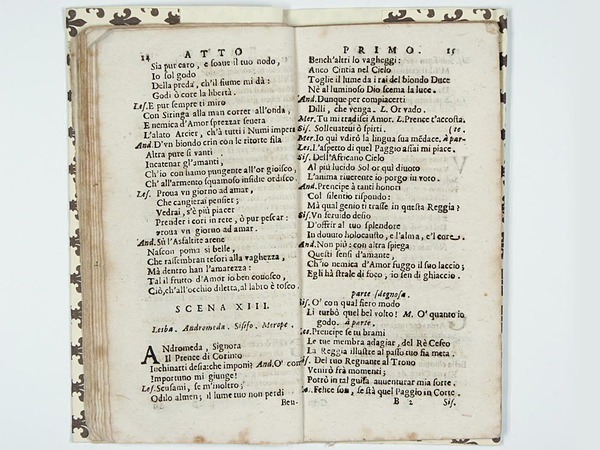 14 ATTO
Sia pur caro, e soaue il tuo nodo,
Io sol godo
Della preda, ch'il fiume mi dà:
Godi ò core la libertà.
Les. E pur sempre ti miro
Con Siringa alla man correr all'onda,
E nemica d'Amor sprezzar seuera
L'alato Arcier, ch'à tutti i Numi impera
And. D'vn biondo crin con le ritorte fila
Altra pure si vanti
Incatenar gl'amanti,
Ch'io con hamo pungente all'or gioisco,
Ch'all'armento squamoso insidie ordisco.
Les. Proua vn giorno ad amar,
Che cangierai pensier;
Vedrai, s'è più piacer
Prender i cori in rete, ò pur pescar:
Proua vn giorno ad amar.
And. Sù l'Asfaltite arene
Nascon poma sì belle,
Che rassembran tesori alla vaghezza,
Mà dentro han l'amarezza:
Tal il frutto d'Amor io ben conosco,
Ciò, ch'all'occhio diletta, al labro è tosco.
SCENA XIII.
Lesba. Andromeda. Sisifo. Merope.
ANdromeda, Signora
Il Prence di Corinto
Inchinarti desia: che imponi? And. O' com
Importuno mi giunge!
Les. Scusami, se m'inoltro;
Odilo almen; il lume tuo non perdi
Ben-
PRIMO. 15
Bench'altri lo vagheggi:
Anco Cintia nel Cielo
Toglie il lume da i rai del biondo Duce
Nè al luminoso Dio scema la luce.
And. Dunque per compiacerti
Dilli, che venga. L. Or vado.
Mer. Tu mi tradisci Amor. L. Prence t'accosta.
Sis. Solleuateui ò spirti. (te.
Mer. Io qui vdirò la lingua sua mẽdace. à par-
Les. L'aspetto di quel Paggio assai mi piace.
Sis. Dell'Africano Cielo
Al più lucido Sol or quì diuoto
L'anima riuerente io porgo in voto.
And. Prencipe à tanti honori
Col silentio rispondo:
Mà qual genio ti trasse in questa Reggia?
Sis. Vn feruido desio
D'offrir al tuo splendore
In douuto holocausto, e l'alma, e'l core.
And. Non più: con altra spiega
Questi sensi d'amante,
Ch'io nemica d'Amor fuggo il suo laccio;
Egli hà strale di foco, io sen di ghiaccio.
parte sdegnosa.
Sis. O' con qual fiero modo
Li turbò quel bel volto! M. O' quanto io
godo. à parte.
Les. Prencipe se tu brami
Le tue membra adagiar, del Rè Cefeo
La Reggia illustre al passo tuo sia meta.
Sis. Del tuo Regnante al Trono
Venirò frà momenti;
Potrò in tal guisa auuenturar mia sorte.
Les. Felice son, se stà quel Paggio in Corte.
B 2 Sis.